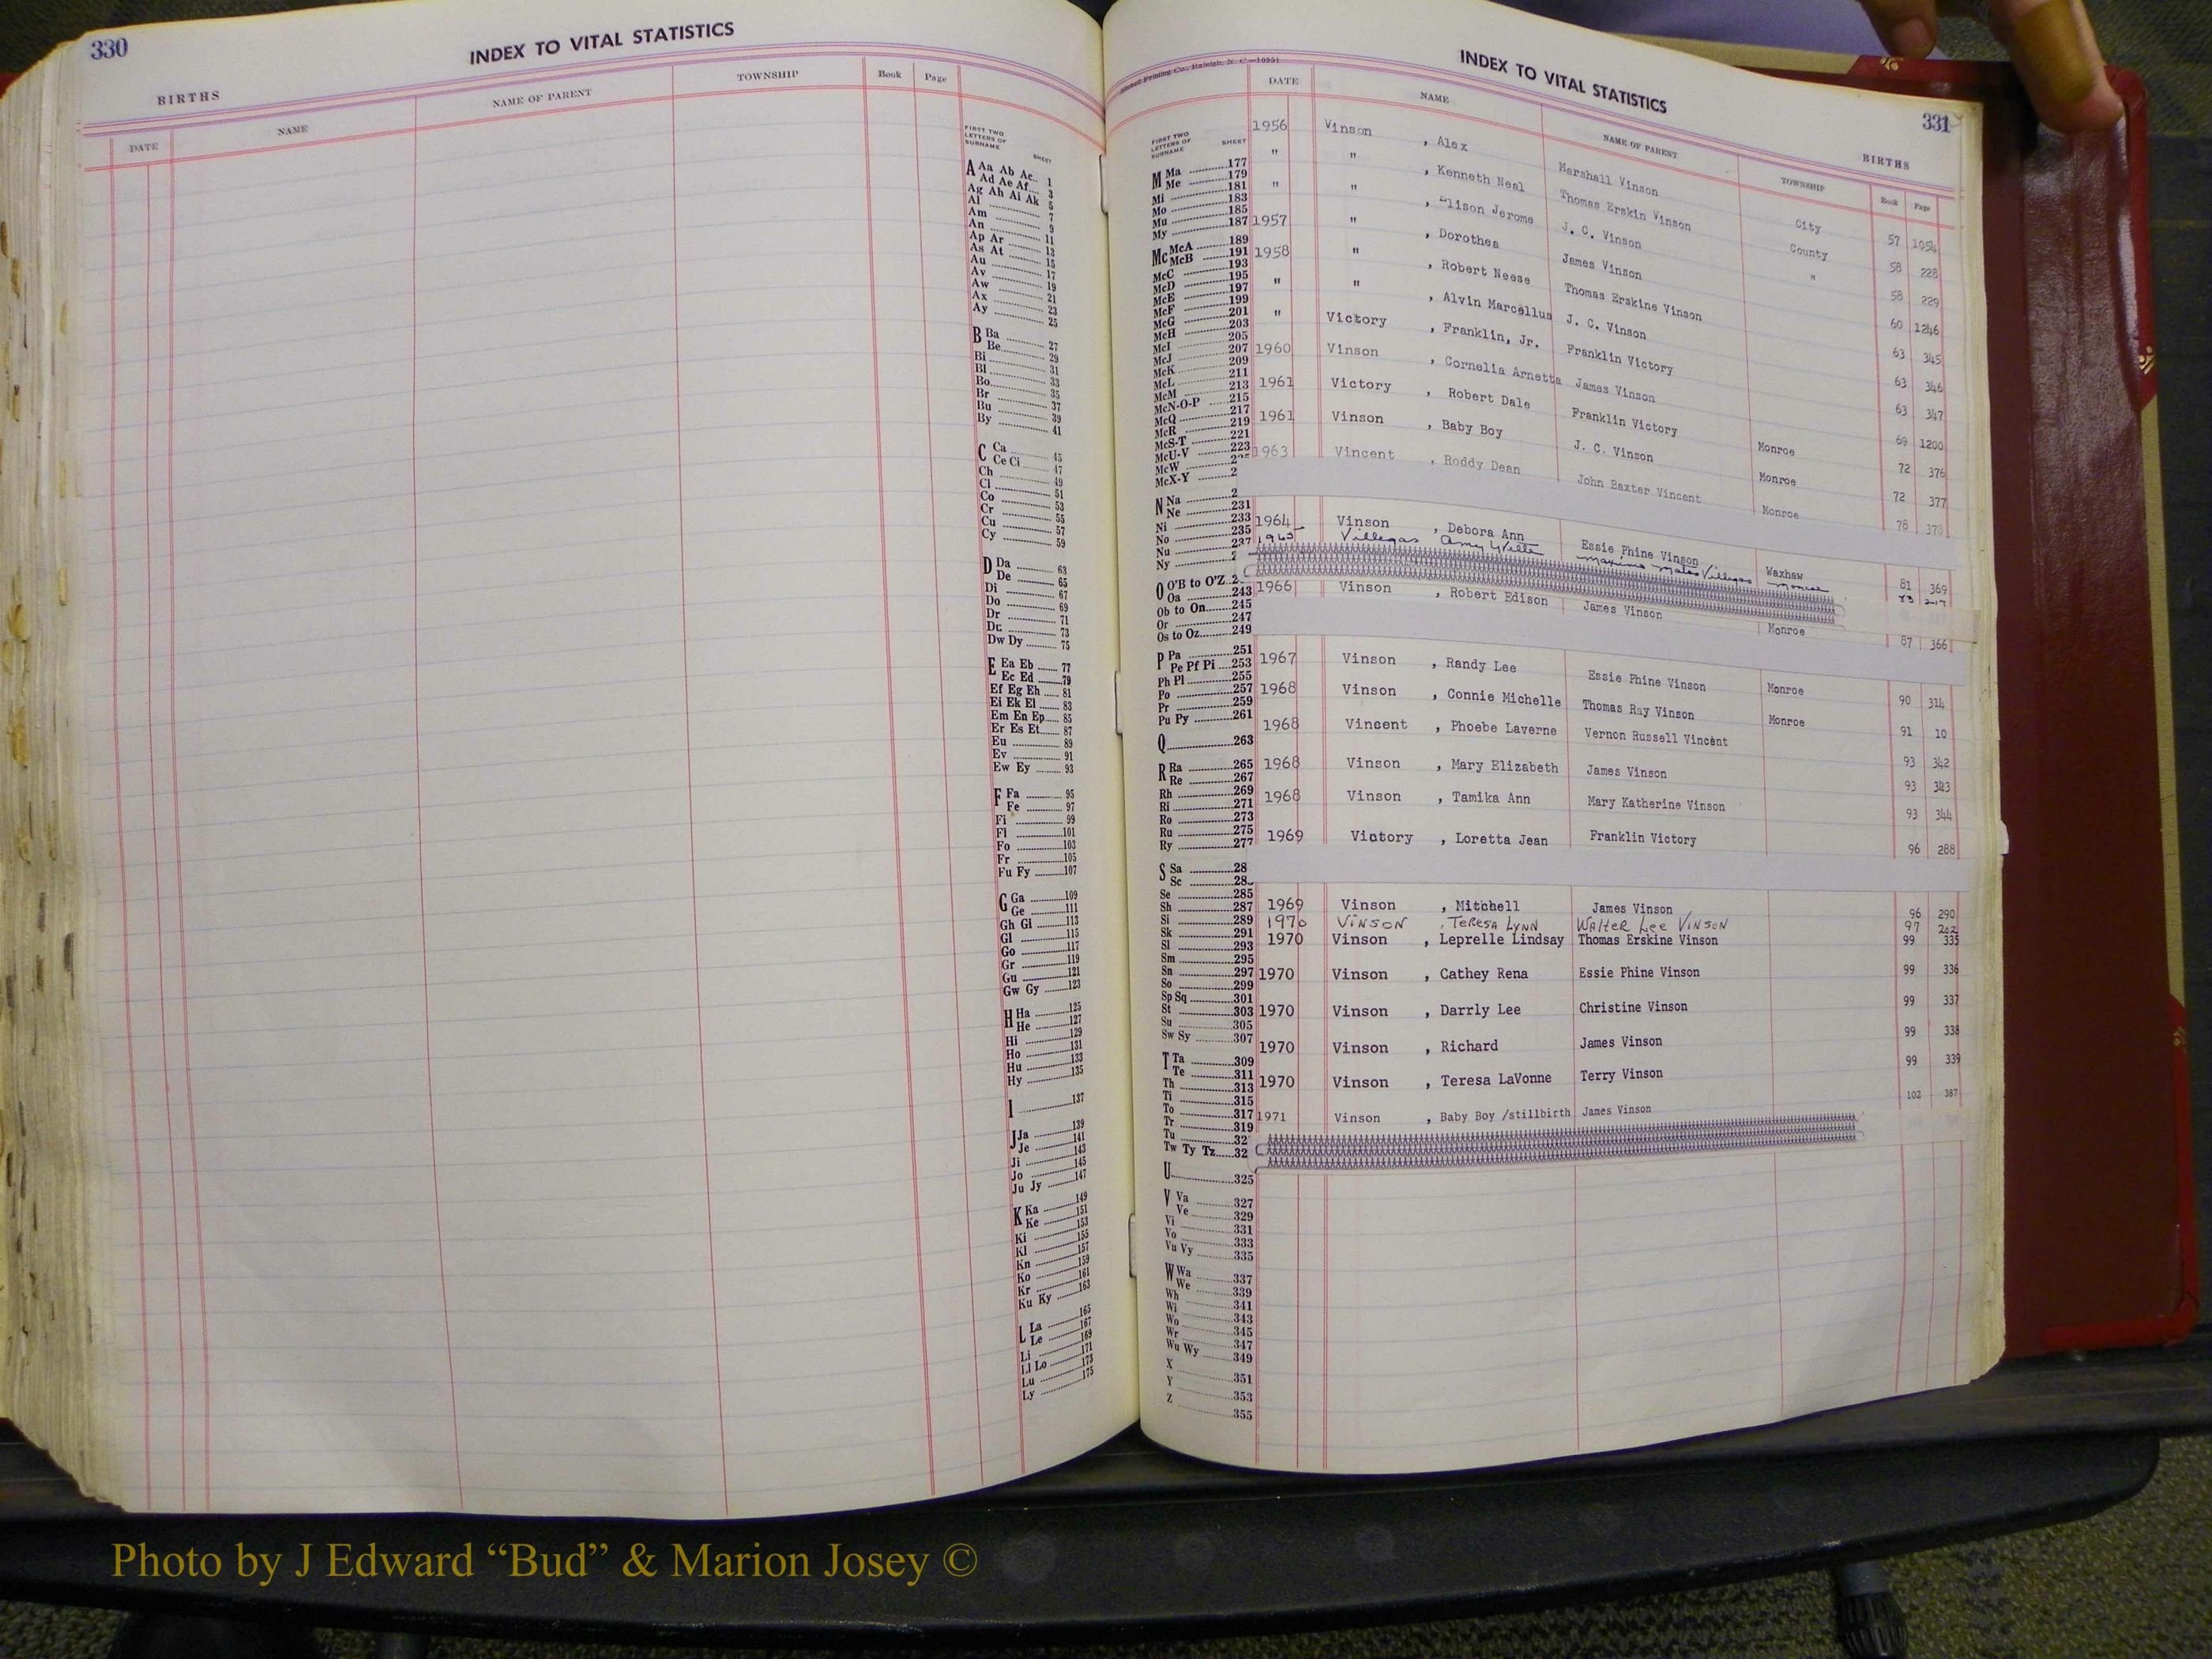 330
INDEX TO VITAL STATISTICS
BIRTHS
DATE NAME NAME OF PARENT TOWNSHIP Book Page
FIRST TWO LETTERS OF SURNAME SHEET
A Aa Ab Ac.. 1
Ad Ae Af.... 3
Ag Ah Ai Ak 5
Al 7
Am 9
An 11
Ap Ar 13
As At 15
Au 17
Av 19
Aw 21
Ax 23
Ay 25
B Ba 27
Be 29
Bi 31
Bl 33
Bo 35
Br 37
Bu 39
By 41
C Ca 45
Ce Ci 47
Ch 49
Cl 51
Co 53
Cr 55
Cu 57
Cy 59
D Da 63
De 65
Di 67
Do 69
Dr 71
Du 73
Dw Dy 75
E Ea Eb 77
Ec Ed 79
Ef Eg Eh 81
Ei Ek El 83
Em En Ep 85
Er Es Et 87
Eu 89
Ev 91
Ew Ey 93
F Fa 95
Fe 97
Fi 99
Fl 101
Fo 103
Fr 105
Fu Fy 107
G Ga 109
Ge 111
Gh Gi 113
Gl 115
Go 117
Gr 119
Gu 121
Gw Gy 123
H Ha 125
He 127
Hi 129
Ho 131
Hu 133
Hy 135
I 137
J Ja 139
Je 141
Ji 143
Jo 145
Ju Jy 147
K Ka 149
Ke 151
Ki 153
Kl 155
Kn 157
Ko 159
Kr 161
Ku Ky 163
L La 165
Le 167
Li 169
Ll Lo 171
Lu 173
Ly 175
Mitchell Printing Co., Raleigh, N. C.—10951
INDEX TO VITAL STATISTICS
331
BIRTHS
DATE NAME NAME OF PARENT TOWNSHIP Book Page
FIRST TWO LETTERS OF SURNAME SHEET
M Ma 177
Me 179
Mi 181
Mo 183
Mu 185
My 187
Mc McA 189
McB 191
McC 193
McD 195
McE 197
McF 199
McG 201
McH 203
McI 205
McJ 207
McK 209
McL 211
McM 213
McN-O-P 215
McQ 217
McR 219
McS-T 221
McU-V 223
McW
McX-Y
N Na
Ne 231
Ni 233
No 235
Nu 237
Ny
O O'B to O'Z
Oa 243
Ob to On 245
Or 247
Os to Oz 249
P Pa 251
Pe Pf Pi 253
Ph Pl 255
Po 257
Pr 259
Pu Py 261
Q 263
R Ra 265
Re 267
Rh 269
Ri 271
Ro 273
Ru 275
Ry 277
S Sa 28
Sc 28
Se 285
Sh 287
Si 289
Sk 291
Sl 293
Sm 295
Sn 297
So 299
Sp Sq 301
St 303
Su 305
Sw Sy 307
T Ta 309
Te 311
Th 313
Ti 315
To 317
Tr 319
Tu 32
Tw Ty Tz 32
U 325
V Va 327
Ve 329
Vi 331
Vo 333
Vu Vy 335
W Wa 337
We 339
Wh 341
Wi 343
Wo 345
Wr 347
Wu Wy 349
X 351
Y 353
Z 355
1956 Vinson , Alex Marshall Vinson City 57 1054
" " , Kenneth Neal Thomas Erskin Vinson County 58 228
" " , Elison Jerome J. C. Vinson " 58 229
1957 " , Dorothea James Vinson 60 1246
1958 " , Robert Neese Thomas Erskine Vinson 63 345
" " , Alvin Marcellus J. C. Vinson 63 346
" Victory , Franklin, Jr. Franklin Victory 63 347
1960 Vinson , Cornelia Arnetta James Vinson 69 1200
1961 Victory , Robert Dale Franklin Victory Monroe 72 376
1961 Vinson , Baby Boy J. C. Vinson Monroe 72 377
1963 Vincent , Roddy Dean John Baxter Vincent Monroe 78 378
1964 Vinson , Debora Ann Essie Phine Vinson Waxhaw 81 369
1965 Villegas Amy Yvette Maximo Matos Villegas Monroe 83 217
1966 Vinson , Robert Edison James Vinson Monroe 87 366
1967 Vinson , Randy Lee Essie Phine Vinson Monroe 90 314
1968 Vinson , Connie Michelle Thomas Ray Vinson Monroe 91 10
1968 Vincent , Phoebe Laverne Vernon Russell Vincent 93 342
1968 Vinson , Mary Elizabeth James Vinson 93 343
1968 Vinson , Tamika Ann Mary Katherine Vinson 93 344
1969 Victory , Loretta Jean Franklin Victory 96 288
1969 Vinson , Mitchell James Vinson 96 290
1970 Vinson , Teresa Lynn Walter Lee Vinson 97 202
1970 Vinson , Leprelle Lindsay Thomas Erskine Vinson 99 335
1970 Vinson , Cathey Rena Essie Phine Vinson 99 336
1970 Vinson , Darrly Lee Christine Vinson 99 337
1970 Vinson , Richard James Vinson 99 338
1970 Vinson , Teresa LaVonne Terry Vinson 99 339
1971 Vinson , Baby Boy /stillbirth James Vinson 102 387
Photo by J Edward “Bud” & Marion Josey ©